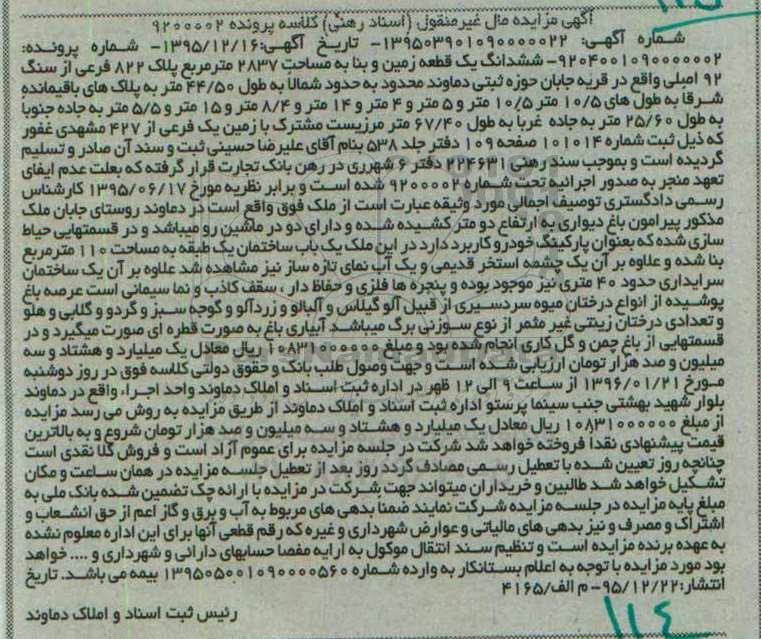 آگهی مزایده مال غیرمنقول (اسناد رهنی) کلاسه پرونده ۹۲۰۰۰۰۲
شماره آگهی: ۱۳۹۵۰۳۹۰۱۰۹۰۰۰۰۰۲۲- تاریخ آگهی:۱۳۹۵/۱۲/۱۶- شماره پرونده:
۹۲۰۴۰۰۱۰۹۰۰۰۰۰۰۲- ششدانگ یک قطعه زمین و بنا به مساحت ۲۸۳۷ مترمربع پلاک ۸۲۲ فرعی از سنگ
۹۲ اصلی واقع در قریه جابان حوزه ثبتی دماوند محدود به حدود شمالا به طول ۴۴/۵۰ متر به پلاک های باقیمانده
شرقا به طول های ۱۰/۵ متر ۱۰/۵ متر و ۵ متر و ۴ متر و ۱۴ متر و ۸/۴ متر و ۱۵ متر و ۵/۵ متر به جاده جنوبا
به طول ۲۵/۶۰ متر به جاده غربا به طول ۶۷/۴۰ متر مرزیست مشترک با زمین یک فرعی از ۴۲۷ مشهدی غفور
که ذیل ثبت شماره ۱۰۱۰۱۴ صفحه ۱۰۹ دفتر جلد ۵۳۸ بنام آقای علیرضا حسینی ثبت و سند آن صادر و تسلیم
گردیده است و بموجب سند رهنی ۲۲۴۶۳۱ دفتر ۶ شهرری در رهن بانک تجارت قرار گرفته که بعلت عدم ایفای
تعهد منجر به صدور اجرائیه تحت شماره ۹۲۰۰۰۰۲ شده است و برابر نظریه مورخ ۱۳۹۵/۰۶/۱۷ کارشناس
رسمی دادگستری توصیف اجمالی مورد وثیقه عبارت است از ملک فوق واقع است در دماوند روستای جابان ملک
مذکور پیرامون باغ دیواری به ارتفاع دو متر کشیده شده و دارای دو در ماشین رو میباشد و در قسمتهایی حیاط
سازی شده که بعنوان پارکینگ خودرو کاربرد دارد در این ملک یک باب ساختمان یک طبقه به مساحت ۱۱۰ مترمربع
بنا شده و علاوه بر آن یک چشمه استخر قدیمی و یک آب نمای تازه ساز نیز مشاهده شد علاوه بر آن یک ساختمان
سرایداری حدود ۴۰ متری نیز موجود بوده و پنجره ها فلزی و حفاظ دار ، سقف کاذب و نما سیمانی است عرصه باغ
پوشیده از انواع درختان میوه سردسیری از قبیل آلو گیلاس و آلبالو و زردآلو و گوجه سبز و گردو و گلابی و هلو
و تعدادی درختان زینتی غیر مثمر از نوع سوزنی برگ میباشد آبیاری باغ به صورت قطره ای صورت میگیرد و در
قسمتهایی از باغ چمن و گل کاری انجام شده بود و مبلغ ۱۰۸۳۱۰۰۰۰۰۰ ریال معادل یک میلیارد و هشتاد و سه
میلیون و صد هزار تومان ارزیابی شده است و جهت وصول طلب بانک و حقوق دولتی کلاسه فوق در روز دوشنبه
مورخ ۱۳۹۶/۰۱/۲۱ از ساعت ۹ الی ۱۲ ظهر در اداره ثبت اسناد و املاک دماوند واحد اجراء واقع در دماوند
بلوار شهید بهشتی جنب سینما پرستو اداره ثبت اسناد و املاک دماوند از طریق مزایده به روش می رسد مزایده
از مبلغ ۱۰۸۳۱۰۰۰۰۰۰ ریال معادل یک میلیارد و هشتاد و سه میلیون و صد هزار تومان شروع و به بالاترین
قیمت پیشنهادی نقدا فروخته خواهد شد شرکت در جلسه مزایده برای عموم آزاد است و فروش کلا نقدی است
چنانچه روز تعیین شده با تعطیل رسمی مصادف گردد روز بعد از تعطیل جلسه مزایده در همان ساعت و مکان
تشکیل خواهد شد طالبین و خریداران میتواند جهت شرکت در مزایده با ارائه چک تضمین شده بانک ملی به
مبلغ پایه مزایده در جلسه مزایده شرکت نمایند ضمنا بدهی های مربوط به آب و برق و گاز اعم از حق انشعاب و
اشتراک و مصرف و نیز بدهی های مالیاتی و عوارض شهرداری و غیره که رقم قطعی آنها برای این اداره معلوم نشده
به عهده برنده مزایده است و تنظیم سند انتقال موکول به ارایه مفصا حسابهای دارائی و شهرداری و .... خواهد
بود مورد مزایده با توجه به اعلام بستانکار به وارده شماره ۱۳۹۵۰۵۰۰۱۰۹۰۰۰۰۵۶۰ بیمه می باشد. تاریخ
انتشار:۹۵/۱۲/۲۲- م الف/۴۱۶۵
رئیس ثبت اسناد و املاک دماوند
۱۱۴